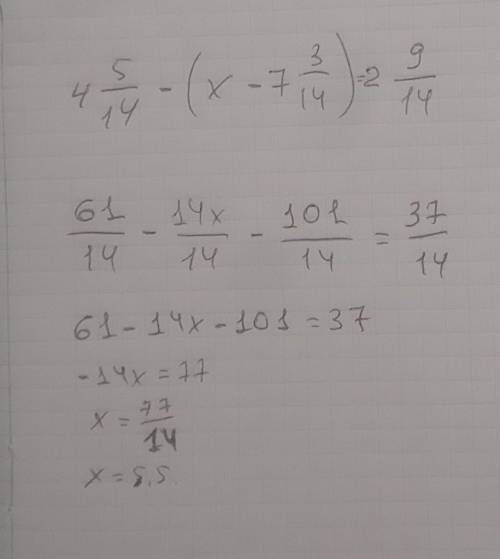 4 5/14 - (x - 7 3/14) = 2 9/14
61/14 - 14x/14 - 101/14 = 37/14
61 - 14x - 101 = 37
-14x = 77
x = 77/14
x = 5,5